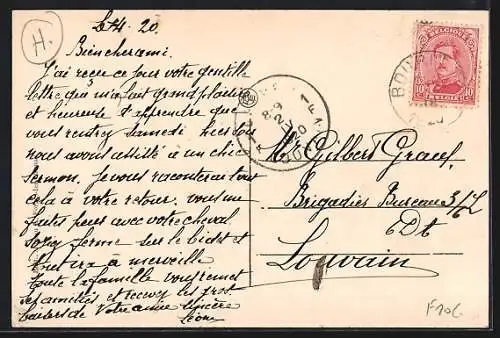 H.
Le 4. 20.
Bien cher ami.
J'ai reçu ce jour votre gentille
lettre qui m'a fait grand plaisir
et heureuse d'apprendre que
vous rentrez Samedi. hier soir
nous avons assisté à un chic
sermon. Je vous raconterai tout
cela à votre retour. vous me
faites peur avec votre cheval
soyez ferme sur le bidet et
tout ira à merveille
toute la famille vous remet
ses amitiés et recevez les
baisers de votre amie sincère
Léone
BELGIQUE
10 10
BELGIE
8-9
1920
Mr Gilbert Grauf.
Brigadier Bureau 3/6
Dt
Louvain
F106